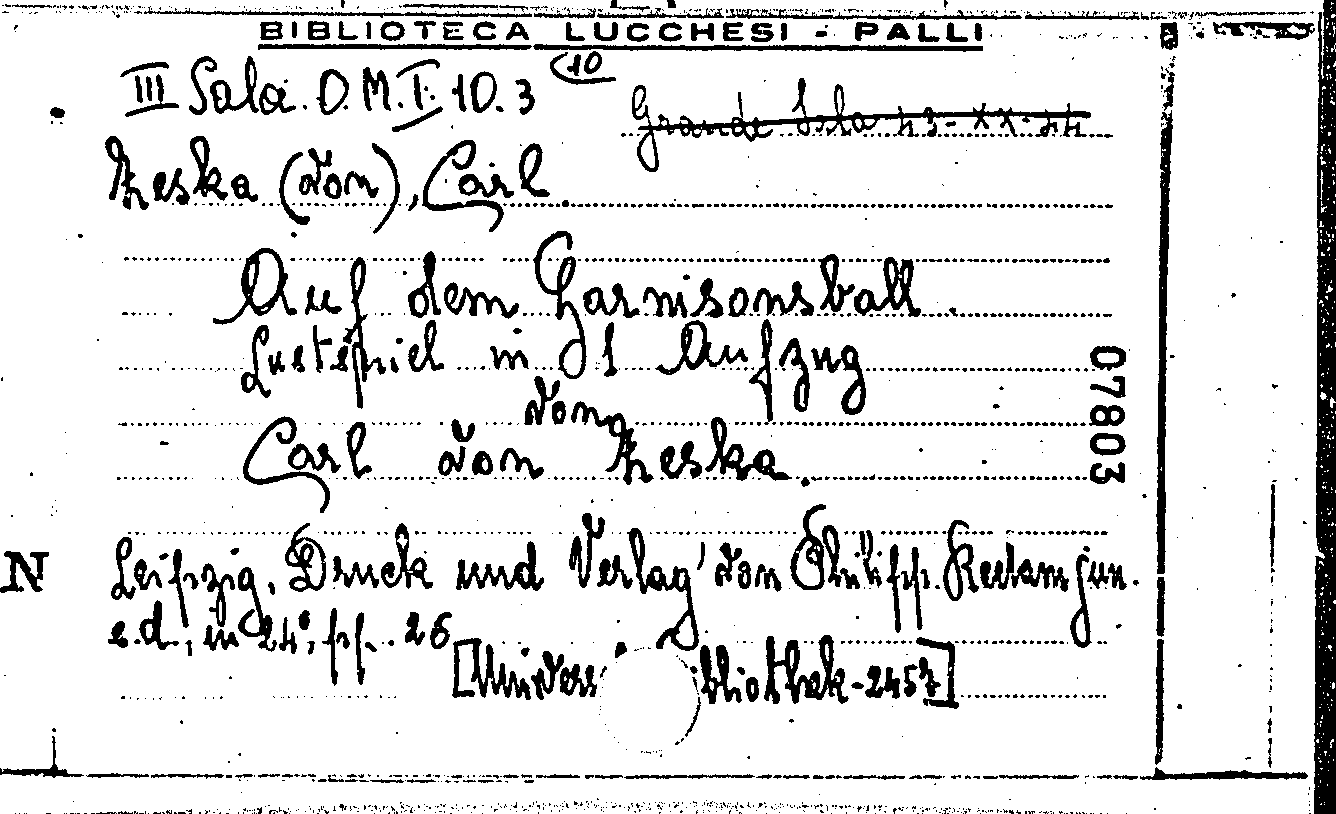 BIBLIOTECA LUCCHESI - PALLI
III Sala. D. M. I. 10. 3 (10
Grande Sala 43-XX-44
Zeska (von), Carl.
Auf dem Garnisonsball.
Lustspiel in 1 Aufzug
von
Carl von Zeska.
07803
N
Leipzig, Druck und Verlag von Philipp Reclam jun.
s.d., in 24°, pp. 26
[Univers bliothek-2457]